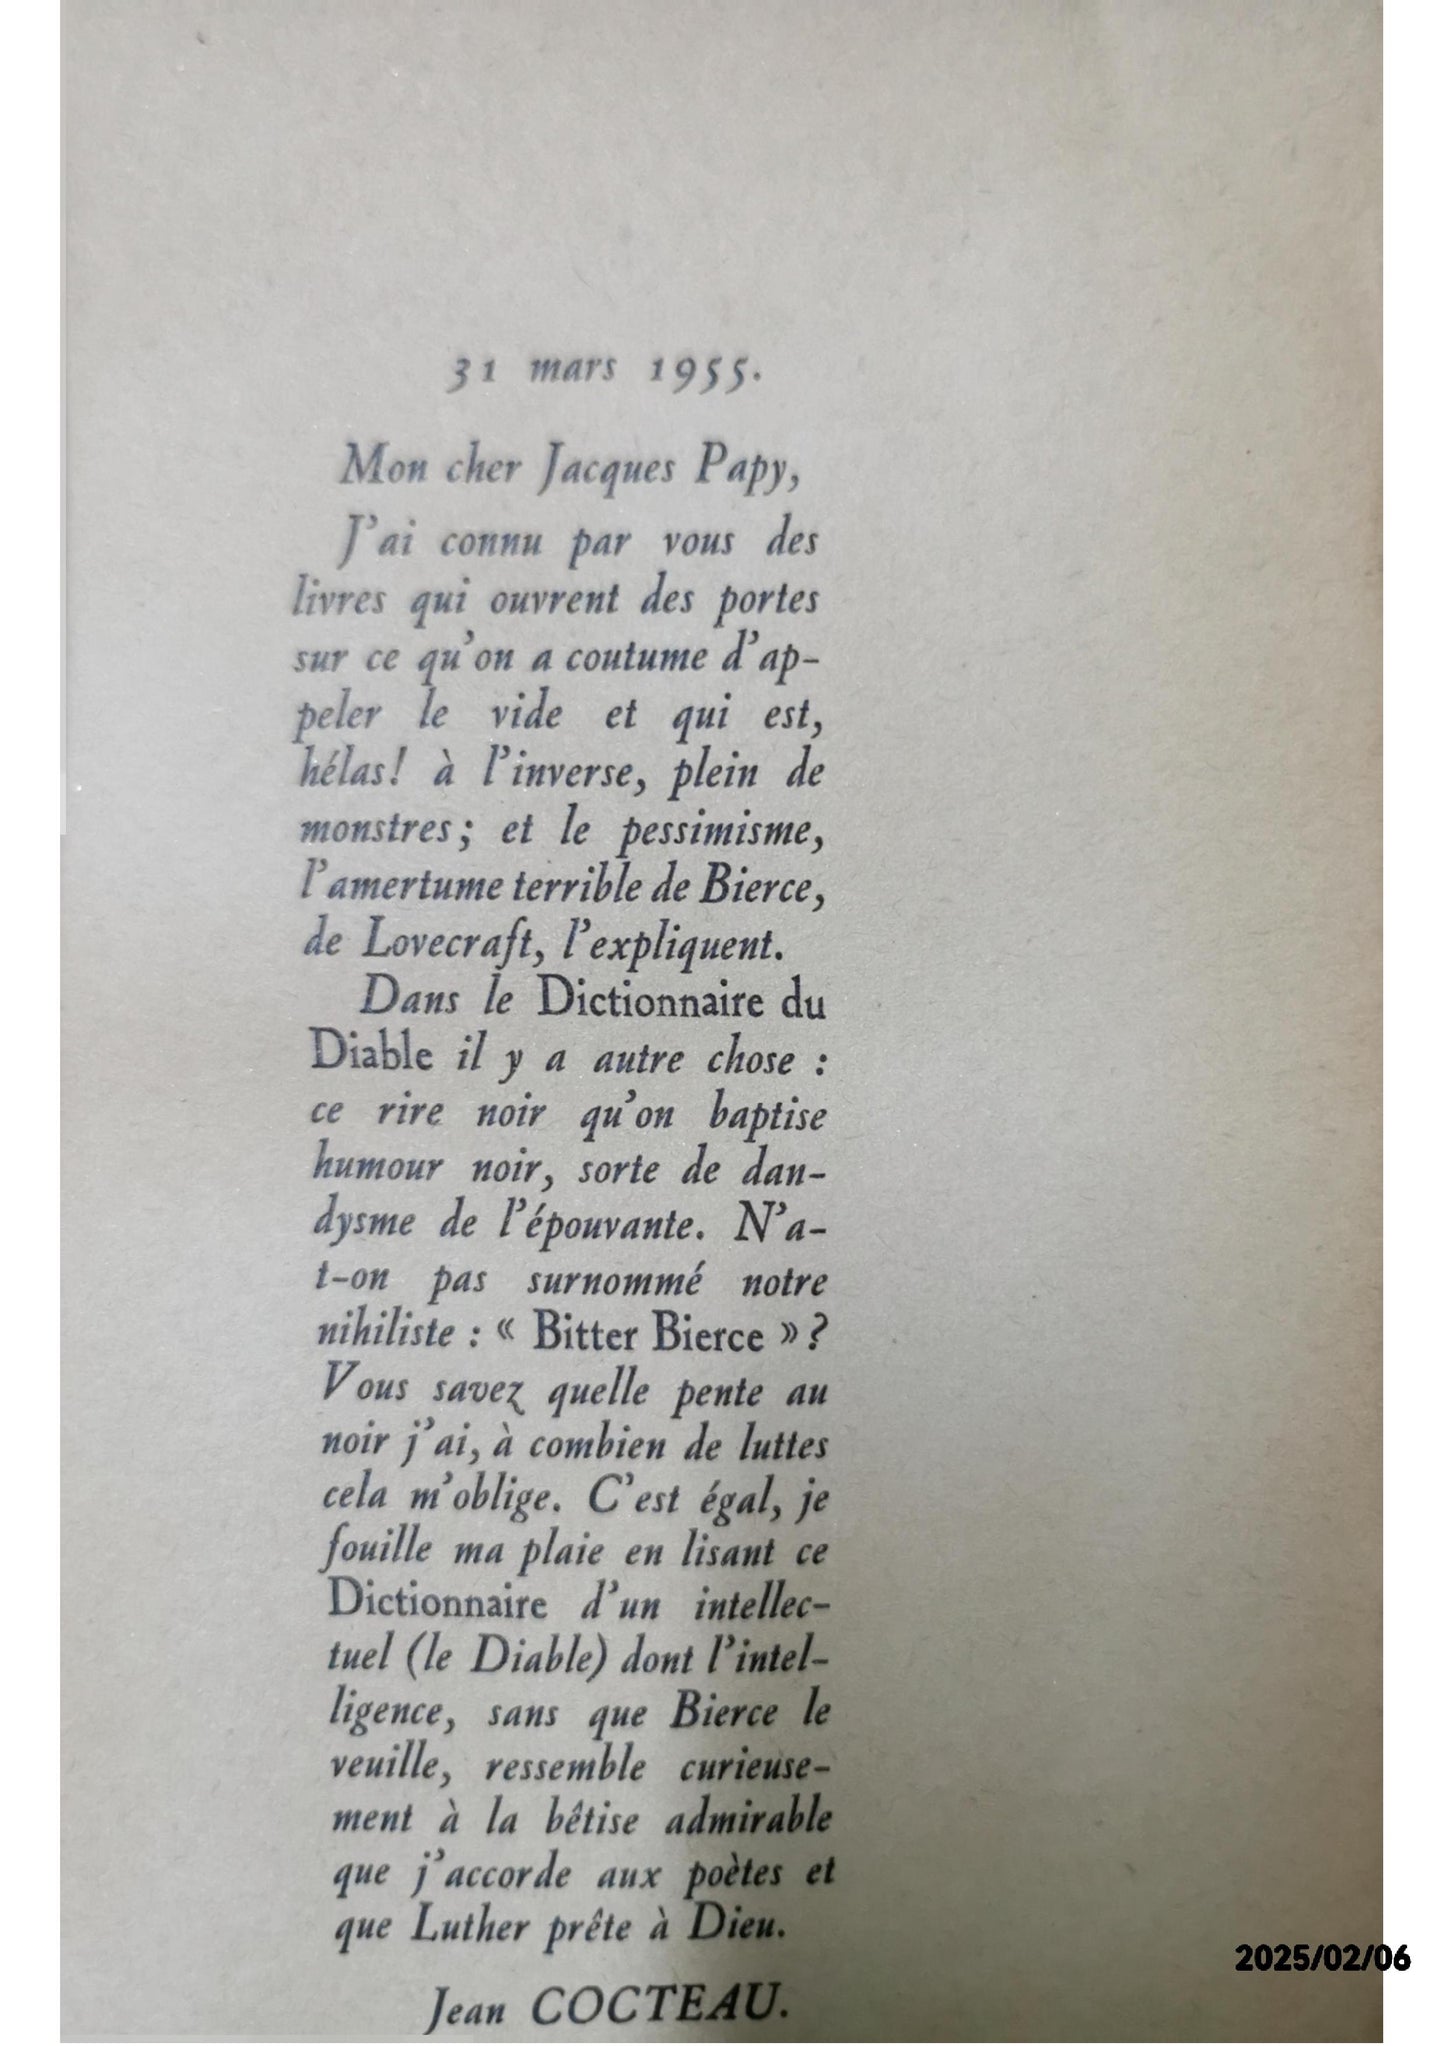 31 mars 1955.
Mon cher Jacques Papy,
J'ai connu par vous des
livres qui ouvrent des portes
sur ce qu'on a coutume d'ap-
peler le vide et qui est,
hélas! à l'inverse, plein de
monstres; et le pessimisme,
l'amertume terrible de Bierce,
de Lovecraft, l'expliquent.
Dans le Dictionnaire du
Diable il y a autre chose :
ce rire noir qu'on baptise
humour noir, sorte de dan-
dysme de l'épouvante. N'a-
t-on pas surnommé notre
nihiliste : « Bitter Bierce »?
Vous savez quelle pente au
noir j'ai, à combien de luttes
cela m'oblige. C'est égal, je
fouille ma plaie en lisant ce
Dictionnaire d'un intellec-
tuel (le Diable) dont l'intel-
ligence, sans que Bierce le
veuille, ressemble curieuse-
ment à la bêtise admirable
que j'accorde aux poètes et
que Luther prête à Dieu.
Jean COCTEAU.
2025/02/06